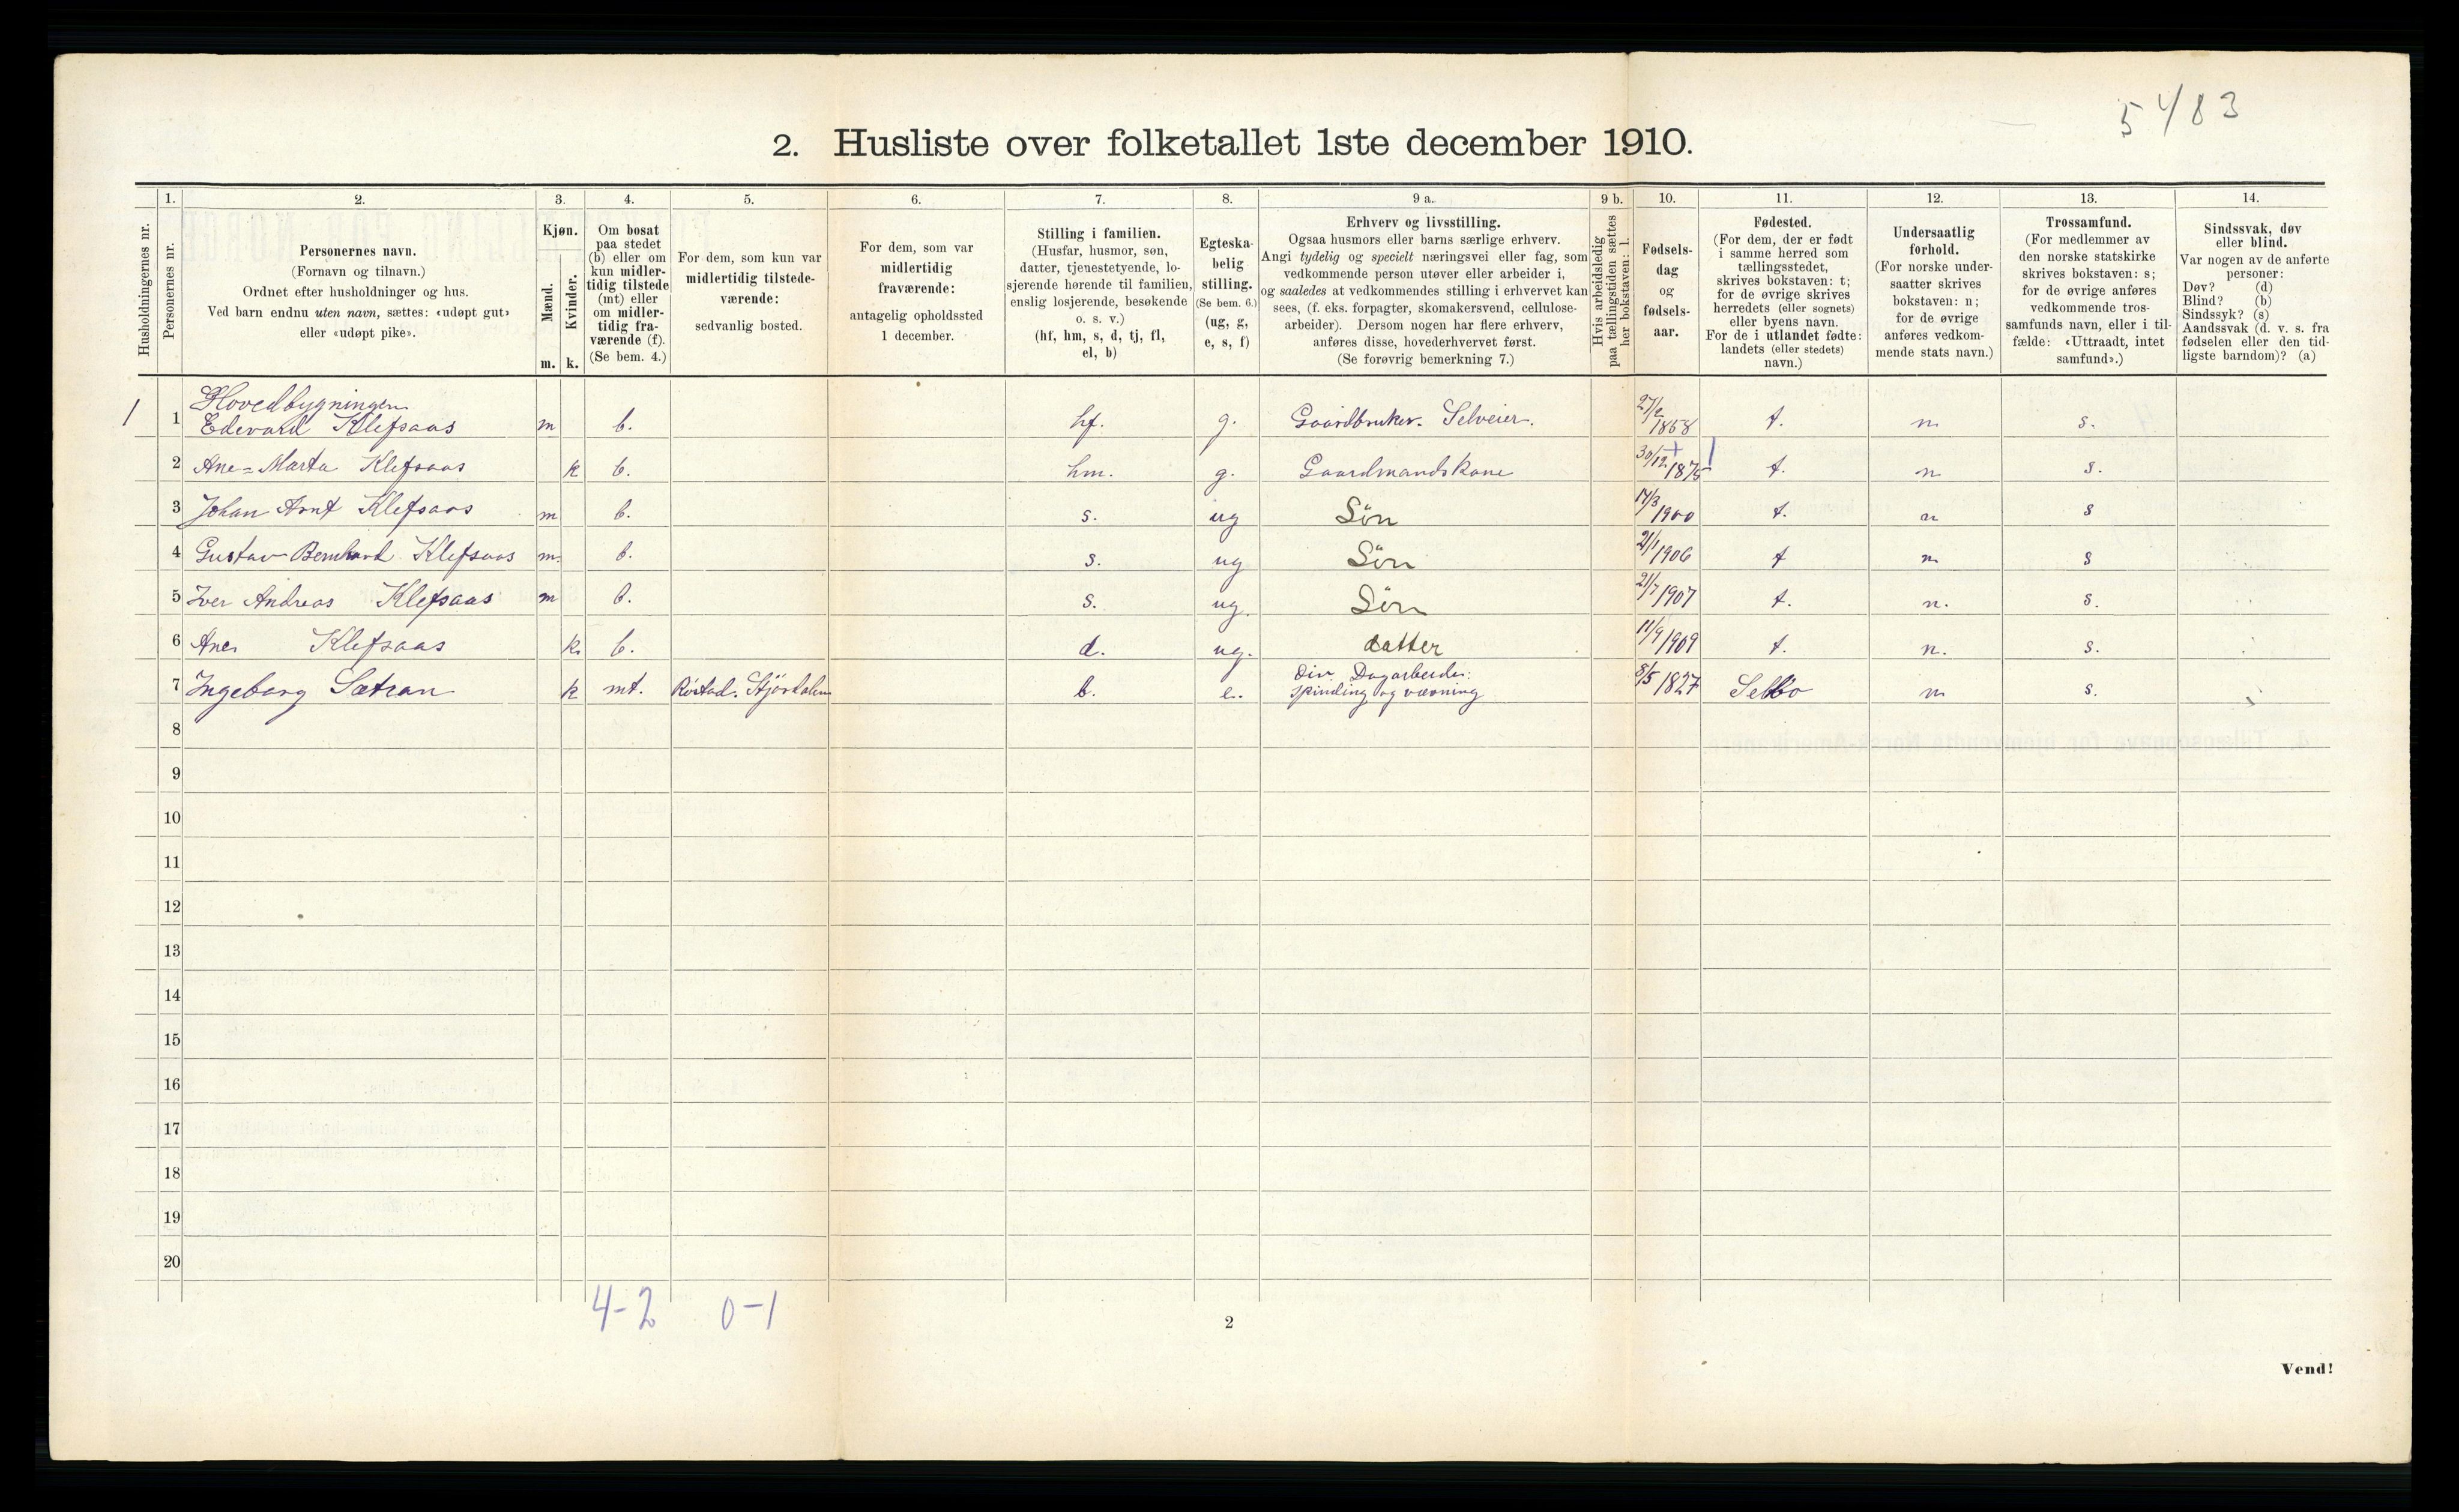 5483
2. Husliste over folketallet 1ste december 1910.
Husholdningernes nr.
1.
Personernes nr.
2.
Personernes navn.
(Fornavn og tilnavn.)
Ordnet efter husholdninger og hus.
Ved barn endnu uten navn, sættes: «udøpt gut»
eller «udøpt pike».
3.
Kjøn.
Mænd.
Kvinder.
m. k.
4.
Om bosat
paa stedet
(b) eller om
kun midler-
tidig tilstede
(mt) eller
om midler-
tidig fra-
værende (f).
(Se bem. 4.)
5.
For dem, som kun var
midlertidig tilstede-
værende:
sedvanlig bosted.
6.
For dem, som var
midlertidig
fraværende:
antagelig opholdssted
1 december.
7.
Stilling i familien.
(Husfar, husmor, søn,
datter, tjenestetyende, lo-
sjerende hørende til familien,
enslig losjerende, besøkende
o. s. v.)
(hf, hm, s, d, tj, fl,
el, b)
8.
Egteska-
belig
stilling.
(Se bem. 6.)
(ug, g,
e, s, f)
9 a.
Erhverv og livsstilling.
Ogsaa husmors eller barns særlige erhverv.
Angi tydelig og specielt næringsvei eller fag, som
vedkommende person utøver eller arbeider i,
og saaledes at vedkommendes stilling i erhvervet kan
sees, (f. eks. forpagter, skomakersvend, cellulose-
arbeider). Dersom nogen har flere erhverv,
anføres disse, hovederhvervet først.
(Se forøvrig bemerkning 7.)
9 b.
Hvis arbeidsledig
paa tællingstiden sættes
her bokstaven: l.
10.
Fødsels-
dag
og
fødsels-
aar.
11.
Fødested.
(For dem, der er født
i samme herred som
tællingsstedet,
skrives bokstaven: t;
for de øvrige skrives
herredets (eller sognets)
eller byens navn.
For de i utlandet fødte:
landets (eller stedets)
navn.)
12.
Undersaatlig
forhold.
(For norske under-
saatter skrives
bokstaven: n;
for de øvrige
anføres vedkom-
mende stats navn.)
13.
Trossamfund.
(For medlemmer av
den norske statskirke
skrives bokstaven: s;
for de øvrige anføres
vedkommende tros-
samfunds navn, eller i til-
fælde: «Uttraadt, intet
samfund».)
14.
Sindssvak, døv
eller blind.
Var nogen av de anførte
personer:
Døv? (d)
Blind? (b)
Sindssyk? (s)
Aandssvak (d. v. s. fra
fødselen eller den tid-
ligste barndom)? (a)
Hovedbygningen
1 1 Edevard Klefsaas m b. hf. g. Gaardbruker. Selveier. 27/2 1868 t. n. s.
2 Ane=Marta Klefsaas k b. hm. g. Gaardmandskone 30/12 1875 t. n s.
3 Johan Arnt Klefsaas m b. s. ug Søn 14/3 1900 t. n s
4 Gustav Bernhard Klefsaas m. b. s. ug Søn 21/1 1906 t n s
5 Iver Andreas Klefsaas m b. s. ug. Søn 21/7 1907 t. n. s.
6 Ane Klefsaas k. b. d. ug. datter 11/9 1909 t. n. s.
7 Ingeborg Sætran k mt. Stjørdalen b. e. Div. Dagarbeide: spinding og vævning 8/5 1827 Selbo n s.
8
9
10
11
12
13
14
15
16
17
18
19
20
4-2 0-1
2
Vend!